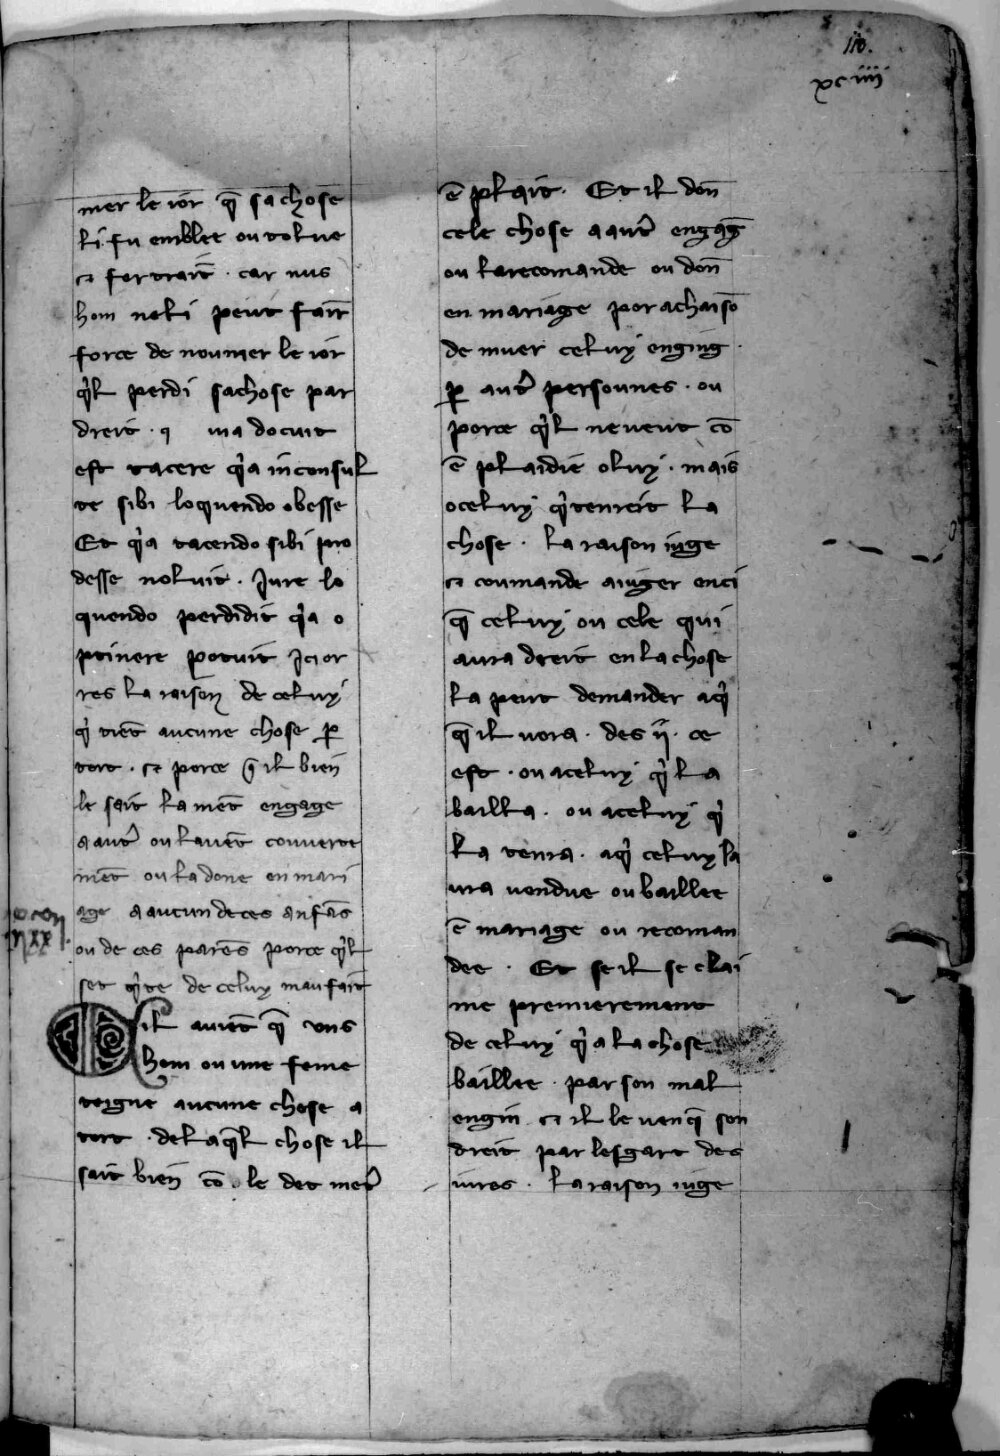 110.
xciiii
mer le ior q̄ sa chose
ki fu emblee ou tolue
⁊ fortrait̄ . car nus
hom neki peut fair̄
force de noumer le ior
q'l perdi sa chose par
dreit .
est tacere q'a inconsul
te sibi loquendo obesse
Et q'a tacendo sibi pro
desse noluit . Jure lo
quendo perdidit q'a o
ptinere potuit Ici or
res la raison de celuy
q' tiēt aucune chose p̲
tort . ⁊ porce q̄ il bien
le sait la mēt engage
a aut' ou la vēt couverte
mēt ou la done en mari
age a aucun de ces anfās
ou de ces parēs porce q'l
set q'te de celuy maufait
Sil avient q̄ uns
hom ou une feme
teigne aucune chose a
tort . de laq̄l chose il
sait bien cō le det met'
ē plait . Et il don̄
cele chose a aut' engaḡ
ou la recomande ou don̄
en mariage por achaisō
de muer celuy enging .
p̲ aut' persounes . ou
porce q'l ne veut cō
ē plaidie o luy . mais
o celuy q' tenreit la
chose . la raison iuge
⁊ coumande a iuger enci
q̄ celuy ou cele qui
aura dreit en la chose
la peut demander a q'
q̄ il vora . des ii . ce
est . ou a celuy q' la
bailla . ou a celuy q'
la tenra . a q' celuy la
ura vendue ou baillee
ē mariage ou recoman
dee . Et se il se clai
me premierement
de celuy q' a la chose
baillee . par son mal
engin ⁊ il le venq̄ son
dreit par lesgart des
iures . la raison iuge